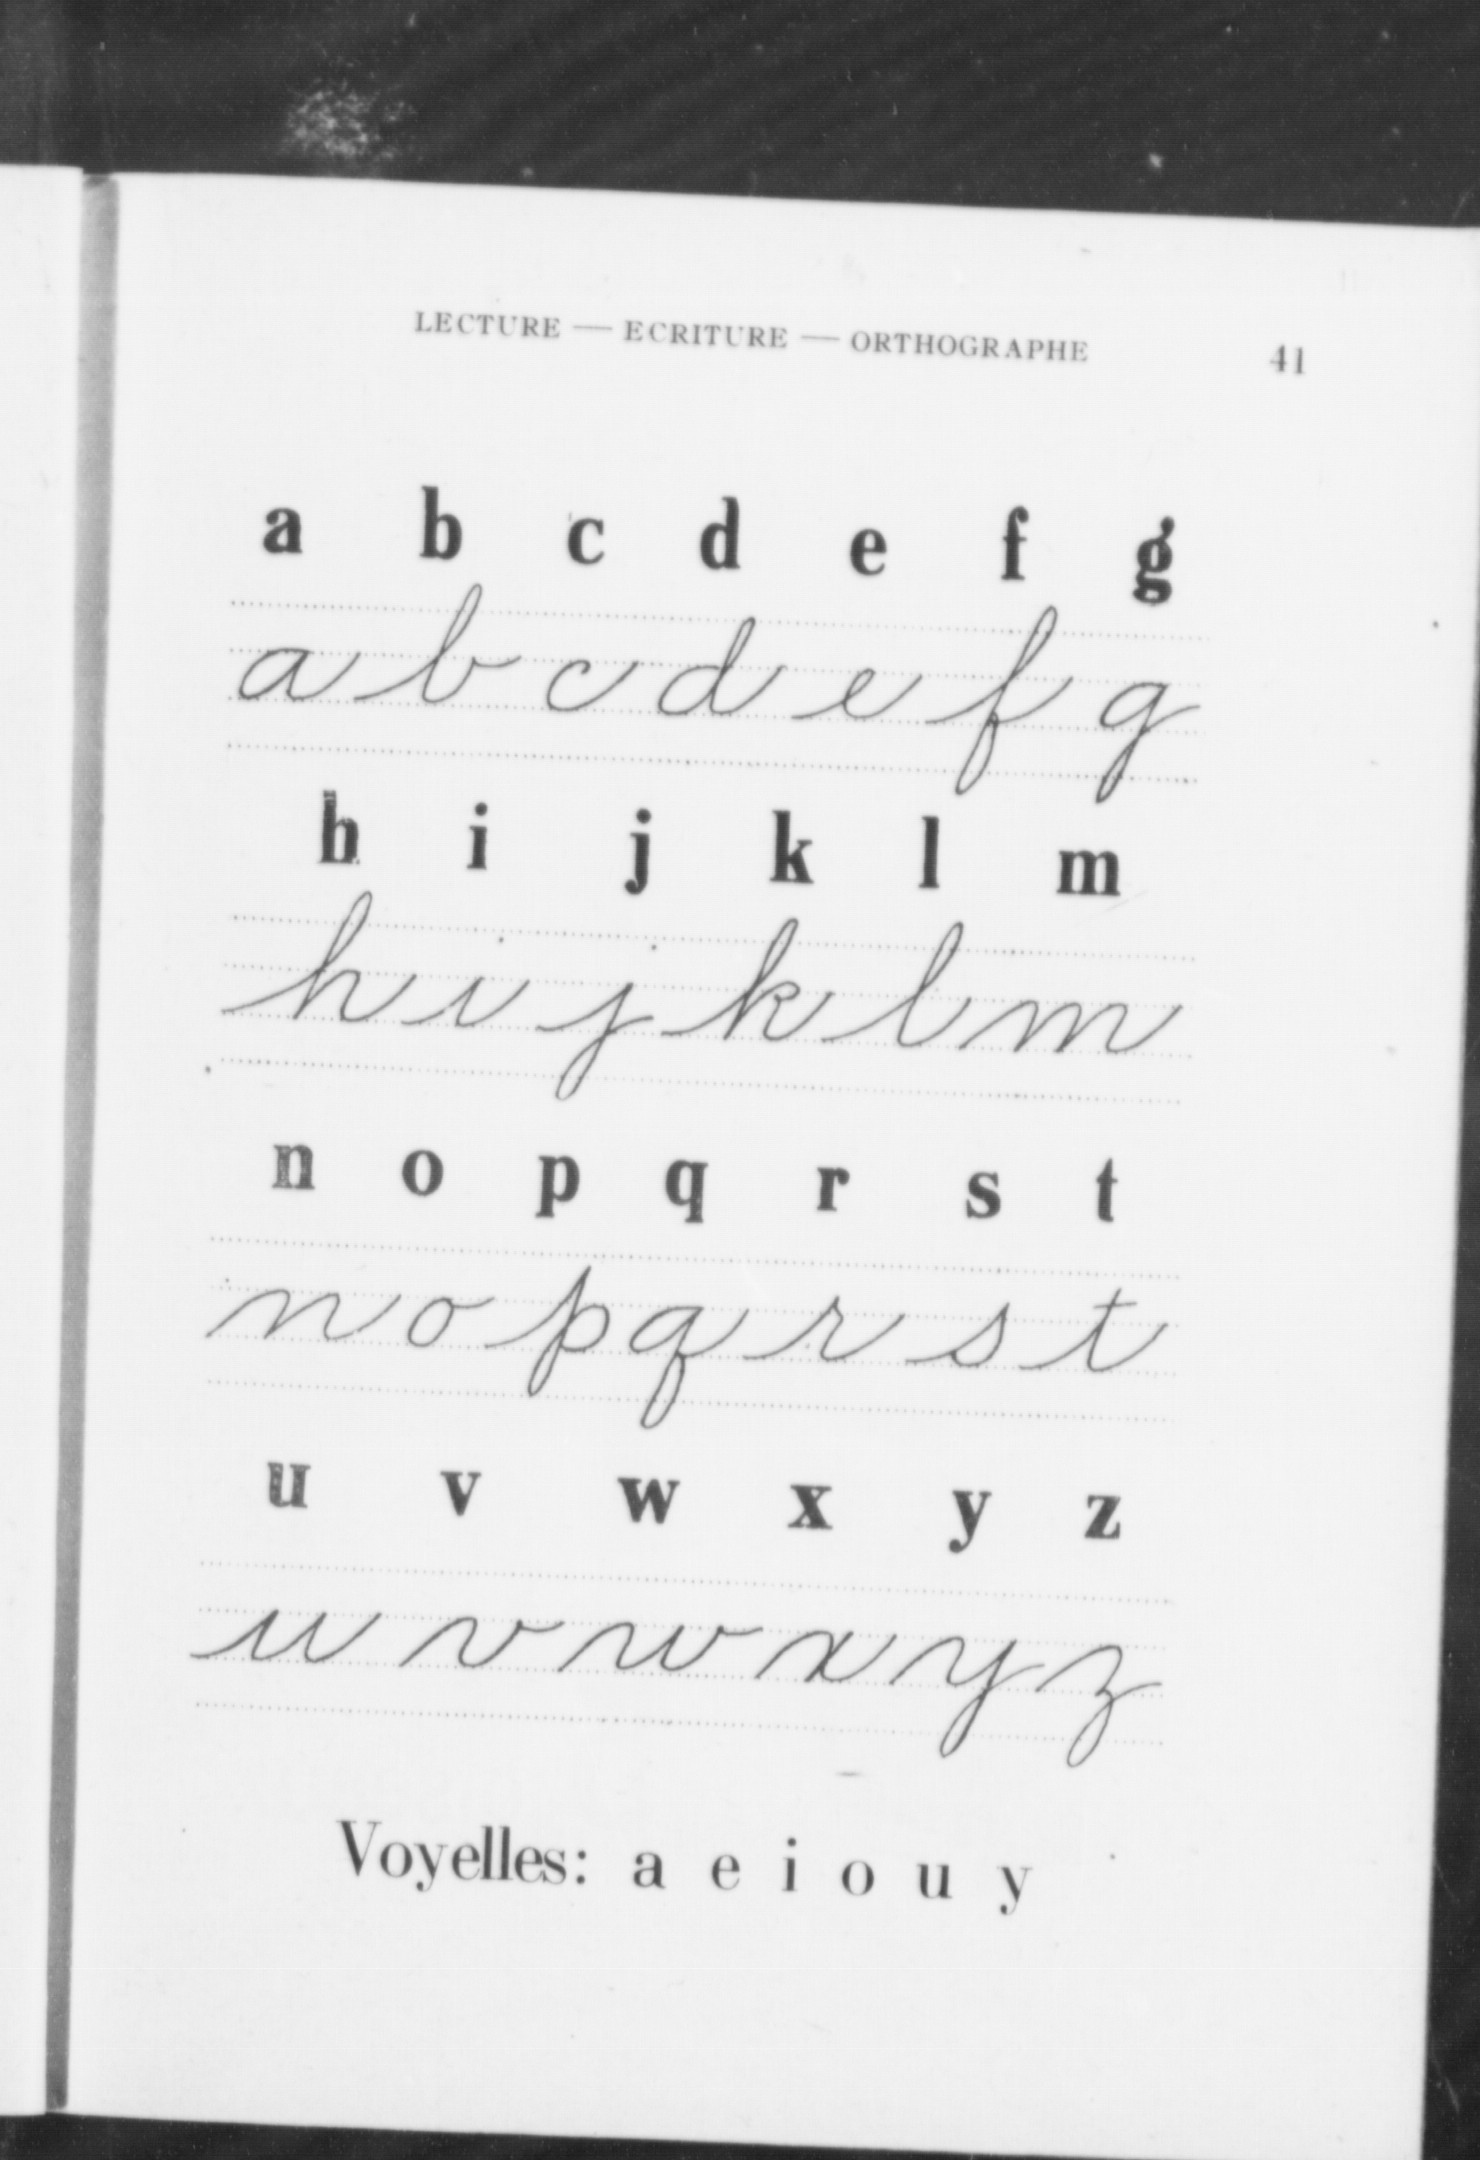 LECTURE — ECRITURE — ORTHOGRAPHE 41
a b c d e f g
a b c d e f g
h i j k l m
h i j k l m
n o p q r s t
n o p q r s t
u v w x y z
u v w x y z
Voyelles: a e i o u y